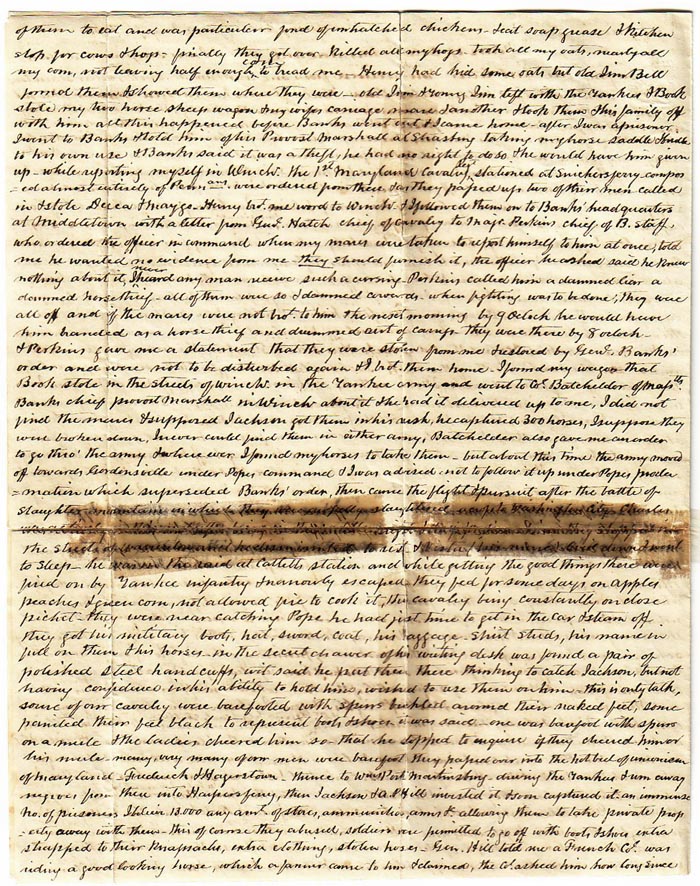 of them to eat and was particular fond of unhatched chickens - eat soap grease & kitchen
slop for cows & hogs - finally they got over. Killed all my hogs. Took all my oats, nearly all
my corn, not leaving half enough corn to bread me. Henry had hid some oats but old Jim Bell
formed them & showed them where they were - old Jim & Young Jim left with the Yankees & Book
stole my two horse sheep wagon & my wifes carriage mare & another & took them & his family off
with him all this happened before Banks went out & I came home - after I was a prisoner
I went to Banks & told him of his Provost Marshall at Strasburg taking my horse saddle & bridle
to his own use & Banks said it was a theft, he had no right to do so & he would have him given
up - while reporting myself in Winchr. the 1st Maryland Cavalry, stationed at Snickers ferry compos
=ed almost entirely of Penns were ordered from there & as they passed up two of their men called
in & stole Decca & Mayzo. Henry bt. me word to Winchr. & I followed them on to Banks' headquarters
at Middletown with a letter from Genl. Hatch chief of Cavalry to Majr. Perkins chief of B. staff
who ordered the officer in command when my mares were taken to report himself to him at once, told
me he wanted no evidence from me they should furnish it, the officer he cashed said he knew
nothing about it, I never heard any man receive such a cursing - Perkins called him a damned liar a
damned horse thief - all of them were so & damned cowards when fighting was to be done, they were
all off and if the mares were not bt. to him the next morning by 9 Oclock he would have
him branded as a horse thief and drummed out of camp. They were there by 8 oclock -
& Perkins gave me a statement that they were stolen from me & restored by Genl. Banks'
order and were not to be disturbed again & I bt. them home. I found my wagon that
Book stole in the streets of Winchr. in the Yankee army and went to Col. Batchelder of Massts
Banks chief provost Marshall in Winchr about it & he had it delivered up to me, I did not
find the mares & supposed Jackson got them in his rush, he captured 300 horses, I suppose they
were broken down, I never could find them in either army, Batchelder also gave me an order
to go thro' the army & where ever I found my horses to take them - but about this time the army moved
off towards Gordonsville under Popes command & I was advised not to follow it up under Popes procla
=mation which superseded Banks' order, then came the flight & pursuit after the battle of
slaughter mountain in which they were
the streets of
to sleep - he was in the raid at Catletts station and while getting the good things there were
fired on by Yankee infantry & narrowly escaped they fed for some days on apples
peaches & green corn, not allowed fire to cook it, the cavalry being constantly on close
picket - they were near catching Pope he had just time to get in the car & steam off
they got his military boots, hat, sword, coat, his baggage - shirt studs, his name in
full on them & his horses. in the secret drawer of his writing desk was found a pair of
polished steel handcuffs, wit said he put them there thinking to catch Jackson, but not
having confidence in his ability to hold him, wished to use them on him - this is only talk,
some of our cavalry were barefooted with spurs buckled around their naked feet, some
painted their feet black to represent boots & shoes it was said - one was barefoot with spurs
on a mule & the ladies cheered him so that he stopped to enquire if they cheered him or
his mule - many, very many of our men were barefoot they passed over into the hot bed of unionism
of Maryland - Frederick & Hagerstown - thence to Wms Port Martinsburg - driving the Yankees & run away
negroes from there into Harpers ferry, then Jackson & A. P. Hill invested it & soon captured it. an immense
No. of prisoners I believe 13.000 any amt. of stores, ammunition, arms &c. allowing them to take private prop
=erty away with them - this of course they abused, soldiers are permitted to go off with boots & shoes extra
strapped to their knapsacks, extra clothing, stolen horses - Gen. Hill told me a French Col. was
riding a good looking horse, which a farmer came to him & claimed, the Col. asked him how long since